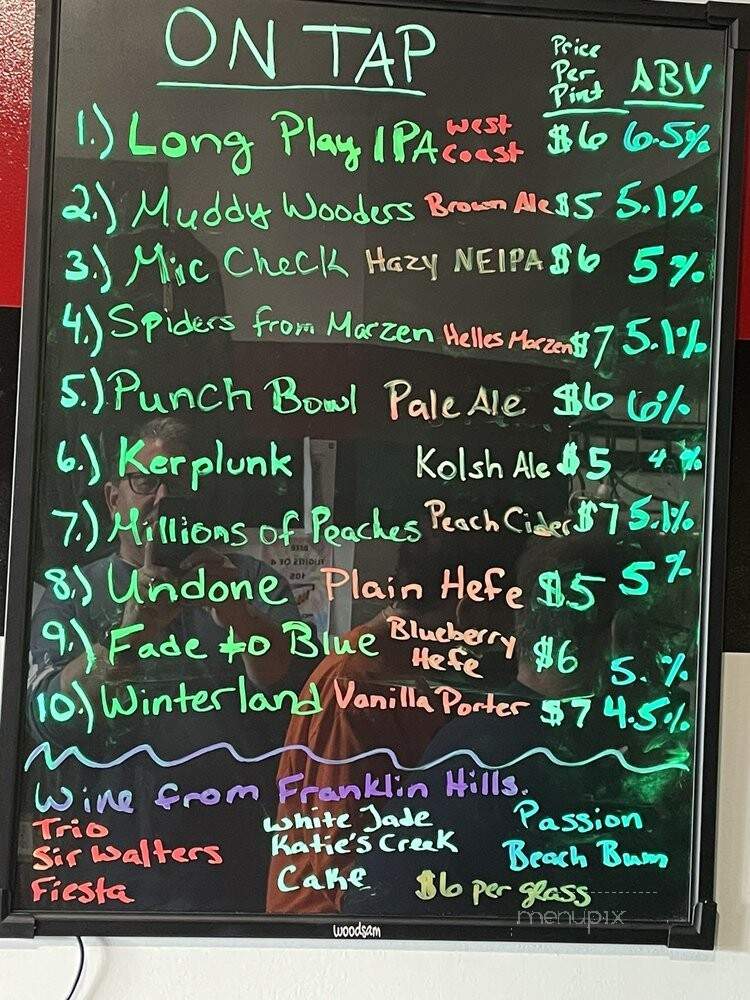 ON TAP
Price Per Pint
ABV
1.) Long Play IPA West Coast $6 6.5%
2.) Muddy Wooders Brown Ale $5 5.1%
3.) Mic Check Hazy NEIPA $6 5%
4.) Spiders from Marzen Helles Marzen $7 5.1%
5.) Punch Bowl Pale Ale $6 6%
6.) Kerplunk Kolsh Ale $5 4 %
7.) Millions of Peaches Peach Cider $7 5.1%
8.) Undone Plain Hefe $5 5%
9.) Fade to Blue Blueberry Hefe $6 5. %
10.) Winterland Vanilla Porter $7 4.5%
Wine from Franklin Hills.
Trio White Jade Passion
Sir Walters Katie's Creek Beach Bum
Fiesta Cake $6 per glass
menupix
woodsam